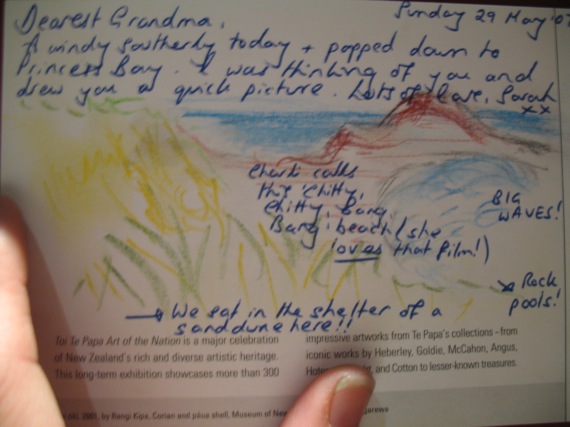 Dearest Grandma,
Sunday 29 May '0
A windy southerly today + popped down to
Princess Bay. I was thinking of you and
drew you a quick picture. Lots of love, Sarah
xx
Charli calls
this 'Chitty,
Chitty, Bang,
Bang' beach (she
loves that film!)
BIG
WAVES!
Rock
pools!
We sat in the shelter of a
sanddune here!!
Toi Te Papa Art of the Nation is a major celebration
of New Zealand's rich and diverse artistic heritage.
This long-term exhibition showcases more than 300
impressive artworks from Te Papa's collections – from
iconic works by Heberley, Goldie, McCahon, Angus,
and Cotton to lesser-known treasures.
2001, by Rangi Kipa, Corian and pāua shell, Museum of New